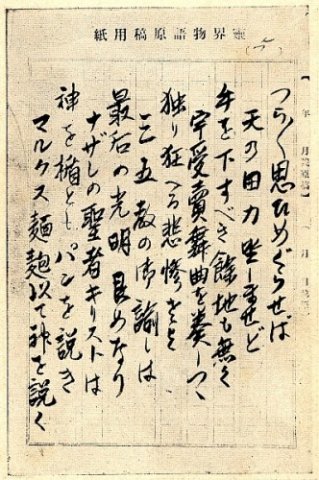 靈界物語原稿用紙
つら〱思ひめぐらせば
天の田力坐しませど
手を下すべき餘地も無く
宇受賣舞曲を奏しつゝ
独り狂へる悲惨さよ
三五教の御諭しは
最后の光明艮めなり
ナザレの聖者キリストは
神を楯としパンを説き
マルクス麺麭以て神を説く